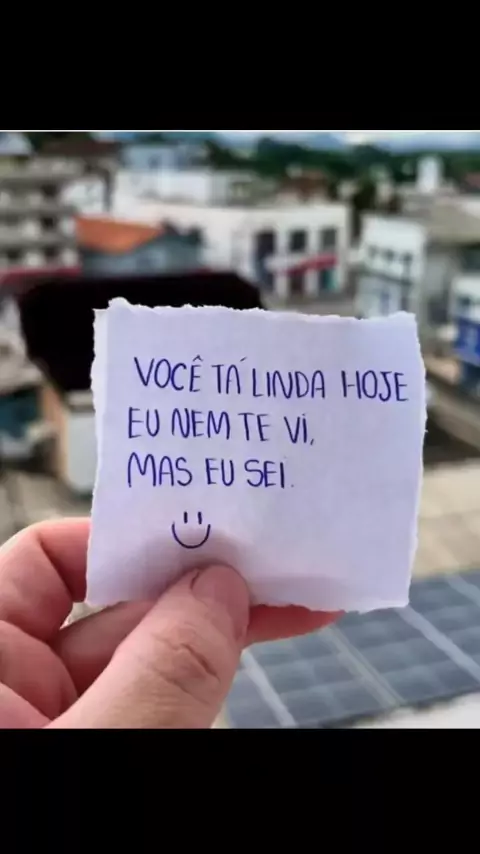 VOCÊ TÁ LINDA HOJE
EU NEM TE VI,
MAS EU SEI.